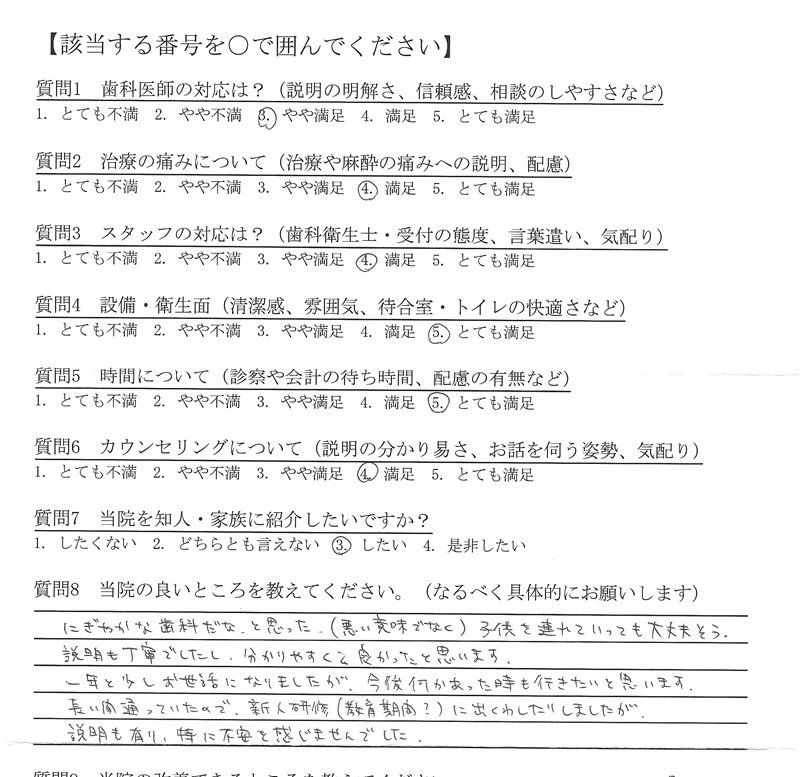 【該当する番号を○で囲んでください】
質問1 歯科医師の対応は？（説明の明解さ、信頼感、相談のしやすさなど）
1. とても不満 2. やや不満 3. やや満足 4. 満足 5. とても満足
質問2 治療の痛みについて（治療や麻酔の痛みへの説明、配慮）
1. とても不満 2. やや不満 3. やや満足 4. 満足 5. とても満足
質問3 スタッフの対応は？（歯科衛生士・受付の態度、言葉遣い、気配り）
1. とても不満 2. やや不満 3. やや満足 4. 満足 5. とても満足
質問4 設備・衛生面（清潔感、雰囲気、待合室・トイレの快適さなど）
1. とても不満 2. やや不満 3. やや満足 4. 満足 5. とても満足
質問5 時間について（診察や会計の待ち時間、配慮の有無など）
1. とても不満 2. やや不満 3. やや満足 4. 満足 5. とても満足
質問6 カウンセリングについて（説明の分かり易さ、お話を伺う姿勢、気配り）
1. とても不満 2. やや不満 3. やや満足 4. 満足 5. とても満足
質問7 当院を知人・家族に紹介したいですか？
1. したくない 2. どちらとも言えない 3. したい 4. 是非したい
質問8 当院の良いところを教えてください。（なるべく具体的にお願いします）
にぎやかな歯科だな、と思った．（悪い意味でなく）子供を連れていっても大丈夫そう．
説明も丁寧でしたし、分かりやすくて良かったと思います．
一年と少しお世話になりましたが、今後何かあった時も行きたいと思います．
長い間通っていたので、新人研修（教育期間？）に出くわしたりしましたが、
説明も有り、特に不安を感じませんでした．